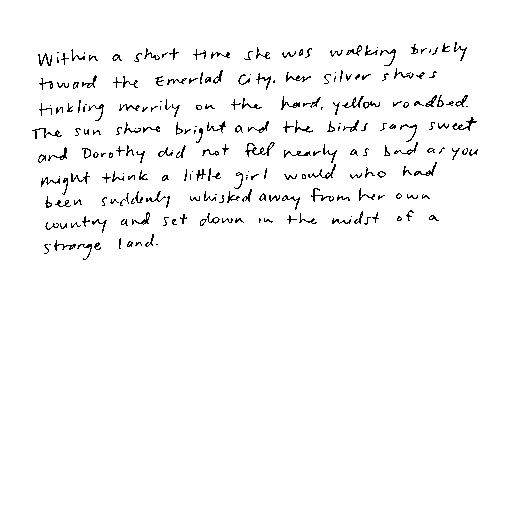 Within a short time she was walking briskly
toward the Emerlad City, her silver shoes
tinkling merrily on the hard, yellow roadbed.
The sun shone bright and the birds sang sweet
and Dorothy did not feel nearly as bad as you
might think a little girl would who had
been suddenly whisked away from her own
country and set down in the midst of a
strange land.